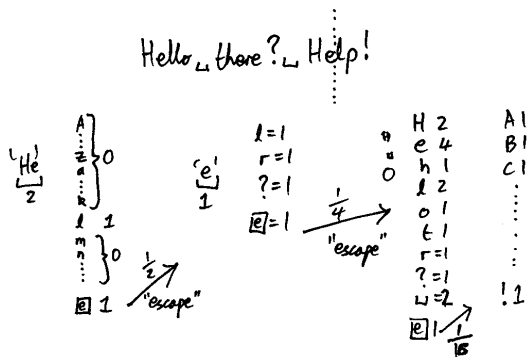 Hello␣there?␣Help!
'He'
2
A
z
a
k
0
l 1
m
n
0
e 1
1/2
"escape"
'e'
1
l=1
r=1
?=1
e=1
1/4
"escape"
0
H 2
e 4
h 1
l 2
o 1
t 1
r=1
?=1
␣=2
e 1
A 1
B 1
C 1
! 1